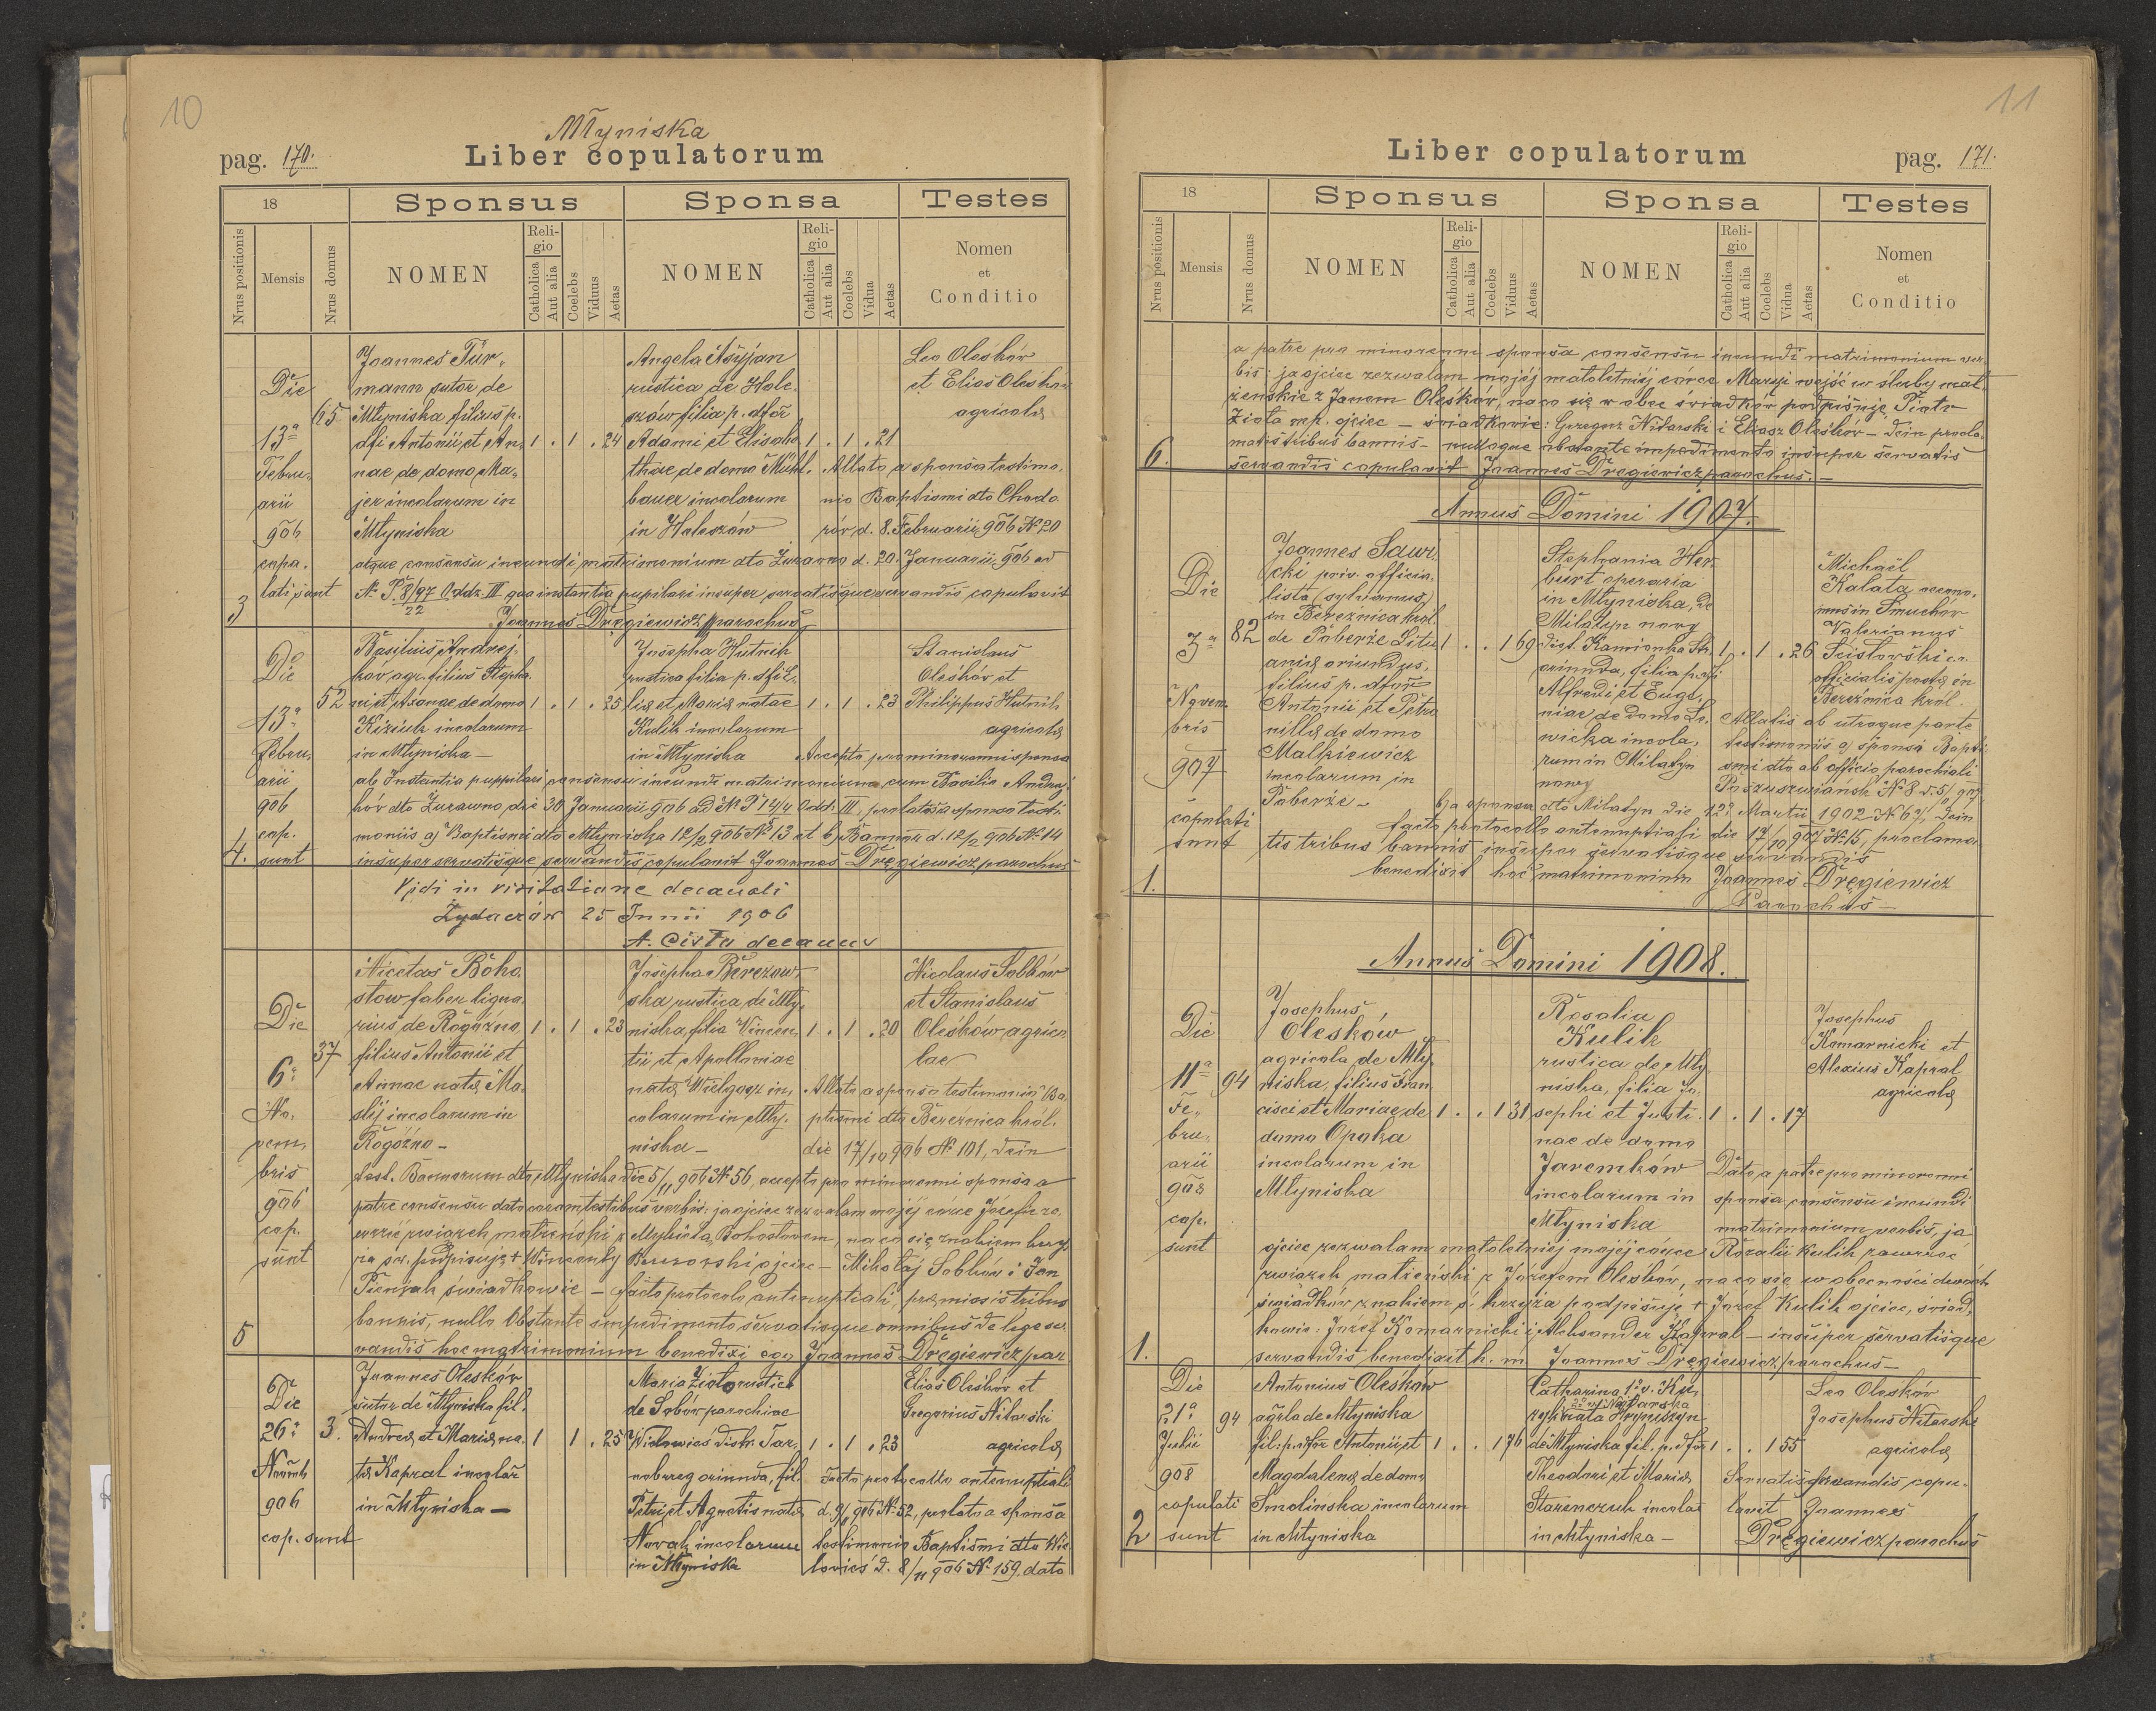 10
Młyniska
pag. 170.
Liber copulatorum
18
Sponsus
Sponsa
Testes
Nrus positionis
Mensis
Nrus domus
NOMEN
Religio
Catholica
Aut alia
Coelebs
Viduus
Aetas
NOMEN
Religio
Catholica
Aut alia
Coelebs
Vidua
Aetas
Nomen
et
Conditio
3
Die
13a
Febru-
arii
906
copu-
lati sunt
65
Joannes Tür-
mann sutor de
Młyniska filius p.
dfi Antonii et An-
nae de domo Ma-
jer incolarum in
Młyniska
1 . 1 . 24
Angela
rustica de Hole-
szów filia p. dfor
Adami et Elisabe-
thae de domo Mühl-
bauer incolarum
in Holeszów
1 . 1 . 21
Leo Olesków
et Elias Olesków
agricolae
Allato a sponsa testimo-
nio Baptismi dto Chodo-
rów d. 8. Februarii 906 No 20
atque consensu ineundi matrimonium dto Żurawno d. 20. Januarii 906 ad
No P. 8/97 Oddz. III qua instantia pupilari insuper servatisque servandis copulavit
22
Joannes Dręgiewicz parochus
4.
Die
13a
Febru-
arii
906
cop.
sunt
52
Basilius Andrej-
ków agr. filius Stepha-
ni et Axenae de domo
Kiziuk incolarum
in Młyniska –
1 . 1 . 25
Josepha Hutnik
rustica filia p. dfi
et Mariae natae
Kulik incolarum
in Młyniska
1 . 1 . 23
Stanislaus
Olesków et
Philippus Hutnik
agricolae
Accepto pro minorenni sponsa
ab Instantia puppilari consensu ineundi matrimonium cum Basilio Andrej-
ków dto Żurawno die 30 Januarii 906 ad No P 14/4 Odd. III, prolatis a sponso testi-
moniis a) Baptismi dto Młyniska 12/2 906 No 13 et b) Bannor d. 12/2 906 No 14
insuper servatisque servandis copulavit Joannes Dręgiewicz parochus
Vidi in visitatione decanali
Żydaczów 25 Junii 1906
A. Cisło decanus
5
Die
6a
No-
vem-
bris
906
cop.
sunt
37
Nicetas Boho-
stow faber ligna-
rius de Rogóźno
filius Antonii et
Annae natae Ma-
slij incolarum in
Rogóźno –
1 . 1 . 23
Josepha Berezow-
ska rustica de Mły-
niska filia Vincen-
tii et Apolloniae
natae Wielgosz in-
colarum in Mły-
niska –
1 . 1 . 20
Nicolaus Sobków
et Stanislaus
Oleśków agrico-
lae
Allato a sponso testimonio Ba-
ptismi dto Bereźnica król.
die 17/10 906 No 101, dein
test. Bannorum dto Młyniska die 5/11 906 No 56, accepto pro minorenni sponsa a
patre consensu dato coram testibus verbis: ja ojciec zezwalam mojéj córce Józefie za-
wrzéć związek małżeński z Mykietą Bohostowem, na co się znakiem krzy-
ża św. podpisuję + Wincenty ojciec – Mikołaj Sobków i Jan
świadkowie – facto protocolo antenuptiali, praemissis tribus
bannis, nullo obstante impedimento servatisque omnibus de lege ser-
vandis hoc matrimonium benedixi ego Joannes Dręgiewicz par.
Die
26a
Novemb
906
cop. sunt
3.
Joannes Oleskór
sutor de Młyniska fil.
Andreae et Mariae na-
tae Kapral incolar
in Młyniska –
1 1 . 25
Maria Zioło rustica
de Sobów parochiae
Wielowieś distr. Tar-
nobrzeg oriunda, fil.
Petri et Agnetis natae
Nowak incolarum
in Młyniska
1 . 1 . 23
Elias Oleśków et
Gregorius Nitarski
agricolae
Facto protocollo antenuptiali
d. 9/11 906 No 52, prolato a sponsa
testimonio Baptismi dto Wie-
lowieś d. 8/11 906 No 159. dato
11
Liber copulatorum
pag. 171.
18
Sponsus
Sponsa
Testes
Nrus positionis
Mensis
Nrus domus
NOMEN
Religio
Catholica
Aut alia
Coelebs
Viduus
Aetas
NOMEN
Religio
Catholica
Aut alia
Coelebs
Vidua
Aetas
Nomen
et
Conditio
a patre pro minorenni sponsa consensu ineundi matrimonium ver-
bis: ja ojciec zezwalam mojéj małoletniéj córce Maryi wejść w śluby mał-
żeńskie z Janem Oleśków, na co się w obec świadków podpisuję Piotr
Zioło mp. ojciec – świadkowie: Grzegorz Nitarski i Eliasz Oleśków – dein procla-
matis tribus bannis – nulloque obstante impedimento insuper servatis
6.
servandis copulavit Joannes Dręgiewicz parochus. –
Annus Domini 1907.
1.
Die
3a
Novem-
bris
907
copulati
sunt
82
Joannes Sawi-
cki priv. officia-
lista (sylvanus)
in Bereźnica król.
de Poberże Litu-
aniae oriundus,
filius p. dfor
Antonii et Petro-
nillae de domo
Malkiewicz
incolarum in
Poberże –
1 . . 1 69
Stephania Her-
burt operaria
in Młyniska, de
Milatyn nowy
dist. Kamionka Str.
oriunda, filia p. dfi
Alfredi et Euge-
niae de domo Le-
wicka incola-
rum in Milatyn
nowy
1 . 1 . 26
Michaël
Kałata oecono-
mus in Smuchów
Valerianus
Scisłowski c. r.
officialis postae in
Bereźnica król.
Allatis ab utraque parte
testimoniis a) sponsi Bapti-
smi dto ab officio parochiali
Poszuszwiansk No 8 d. 5/10 907
b) a sponsa dto Milatyn die 12a Martii 1902 No 67, dein
facto protocollo antenuptiali die 17/10 907 No 15, proclama-
tis tribus bannis insuper servatisque servandis
benedixit hoc matrimonium Joannes Dręgiewicz
Parochus –
Annus Domini 1908.
1.
Die
11a
Fe-
bru-
arii
908
cop.
sunt
94
Josephus
Oleskow
agricola de Mły-
niska, filius Fran-
cisci et Mariae de
domo Opoka
incolarum in
Młyniska
1 . . 1 31
Rosalia
Kulik
rustica de Mły-
niska, filia Jo-
sephi et Justi-
nae de domo
Jaremków
incolarum in
Młyniska
1 . 1 . 17
Josephus
Komarnicki et
Alexius Kapral
agricolae
Dato a patre pro minorenni
sponsa consensu ineundi
matrimonium verbis, ja
ojciec zezwalam małoletniéj mojéj córce Rozalii Kulik zawrzéć
związek małżeński z Józefem Oleśków, na co się w obecności dwóch
świadków znakiem ś. krzyża podpisuję + Józef Kulik ojciec, świad-
kowie: Józef Komarnicki i Aleksander Kapral – insuper servatisque
servandis benedixit h. m. Joannes Dręgiewicz parochus –
2
Die
21a
Julii
908
copulati
sunt
94
Antonius Oleśkow
agrla de Młyniska
fil. p. dfor Antonii et
Magdalenae de domo
Smolinska incolarum
in Młyniska
1 . . 1 76
Catharina 1o v.
2o v. Nitarska
nata Hrynyszyn
de Młyniska fil. p. dfor
Theodori et Mariae
Starenczuk incolar
in Młyniska –
1 . . 1 55
Leo Oleskow
Josephus Nitarski
agricolae
Servatis servandis copu-
lavit Joannes
Dręgiewicz parochus